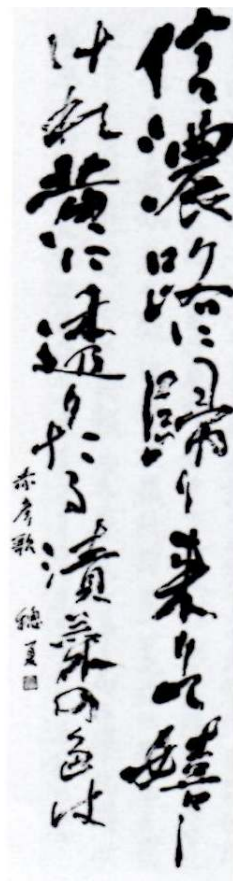 信濃路に歸り来りて嬉し
けれ黄に透りたる漬菜の色は
赤彦歌